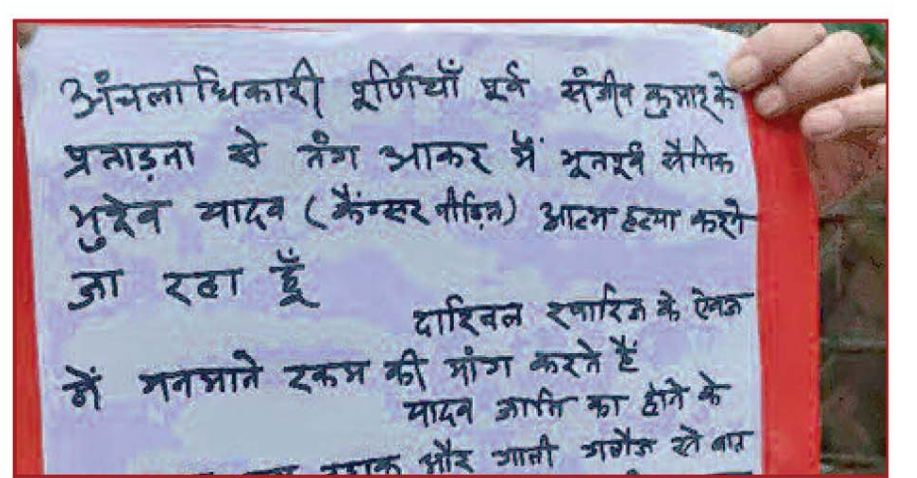 अंचलाधिकारी पूर्णियाँ पूर्व संजीव कुमार के
प्रताड़ना से तंग आकर मैं भूतपूर्व सैनिक
भुदेव यादव (कैन्सर पीड़ित) आत्म हत्या करने
जा रहा हूँ
दाखिल खारिज के ऐवज
में मनमाने रकम की मांग करते हैं
यादव जाति का होने के
और गाली गलौज से बात